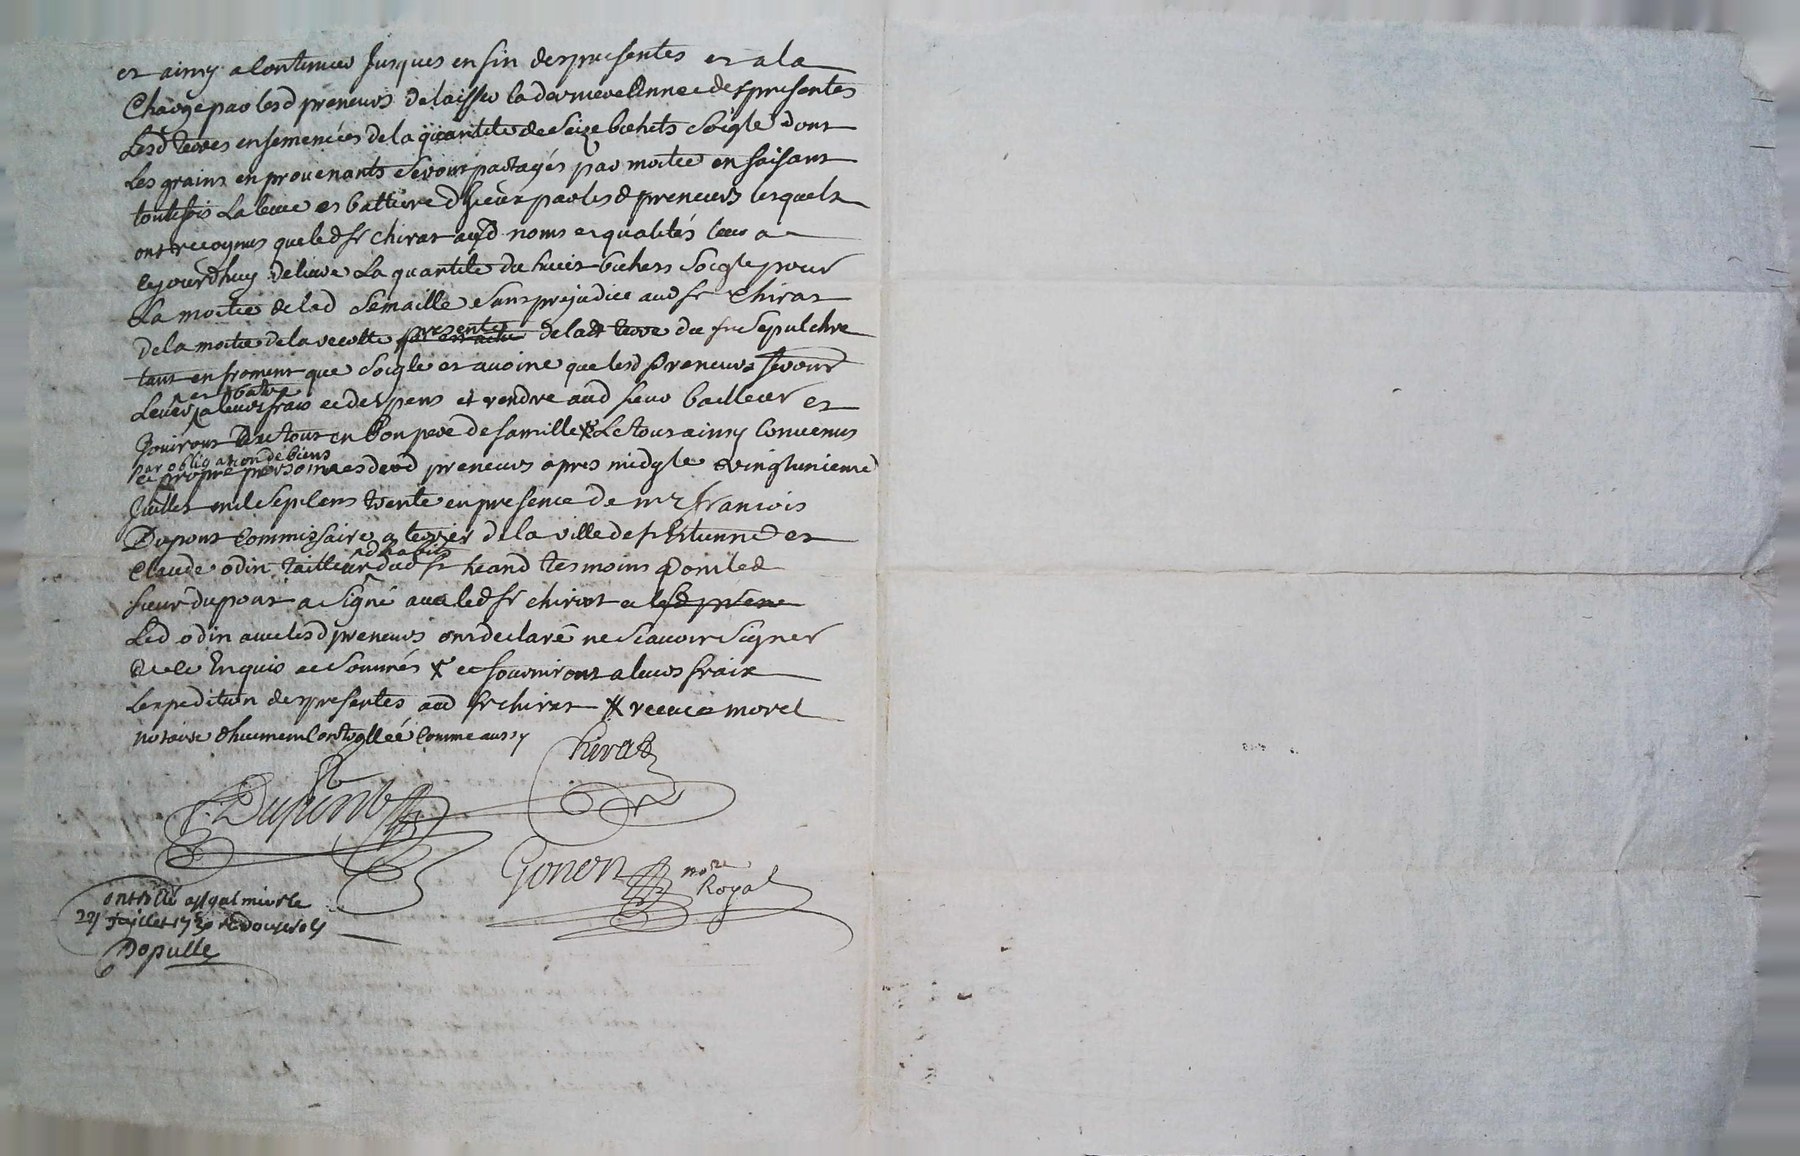 et ainsy a continuer Jusques en fin des presentes et a la
Charge par lesd preneurs de laisser la derniere Année des presentes
Lesd terres ensemencées de la quantité de Seize bichets Soigle dont
Les grains en provenants seront partagés par moitié en faisant
toutefois La levée et batture d'iceux par lesd preneurs lesquels
ont recognus que led Sr Chirat aud noms et qualités leur a
cejourdhuy delivré La quantité de huict bichets Soigle pour
La moitié de lad Semaille Sans prejudice aud Sr Chirat
de la moitié de la recolte presente de lad terre du Sepulchre
tant en froment que Soigle et avoine que lesd Preneurs seront
et battre
Lever a leurs frais et despens et rendre aud Sieur bailleur et
Jouiront Du tout en Bon pere de famille X Le tout ainsy Convenus
par obligation de biens
et propre personnes desd preneurs apres midy le vingtunieme
Juillet mil Sept Cens trente en presence de mr Francois
Dupont Commissaire a terrier de la ville de St Etienne et
d'habits
Claude odin Tailleur dud St heand tesmoins Dont led
Sieur dupont a Signé avec led Sr chirat et lesd prene
Led odin avec lesd preneurs ont declaré ne Scavoir Signer
de ce Enquis et Sommés X et fourniront a leurs fraix
L'expedition des presentes aud Sr chirat X receue morel
notaire dhuement Controllée Comme aussy
Chirat
F. Dupont
Gonon nore
Royal
Controllé a St galmier le
22 Juillet 1730 R douze sols
Dopulle